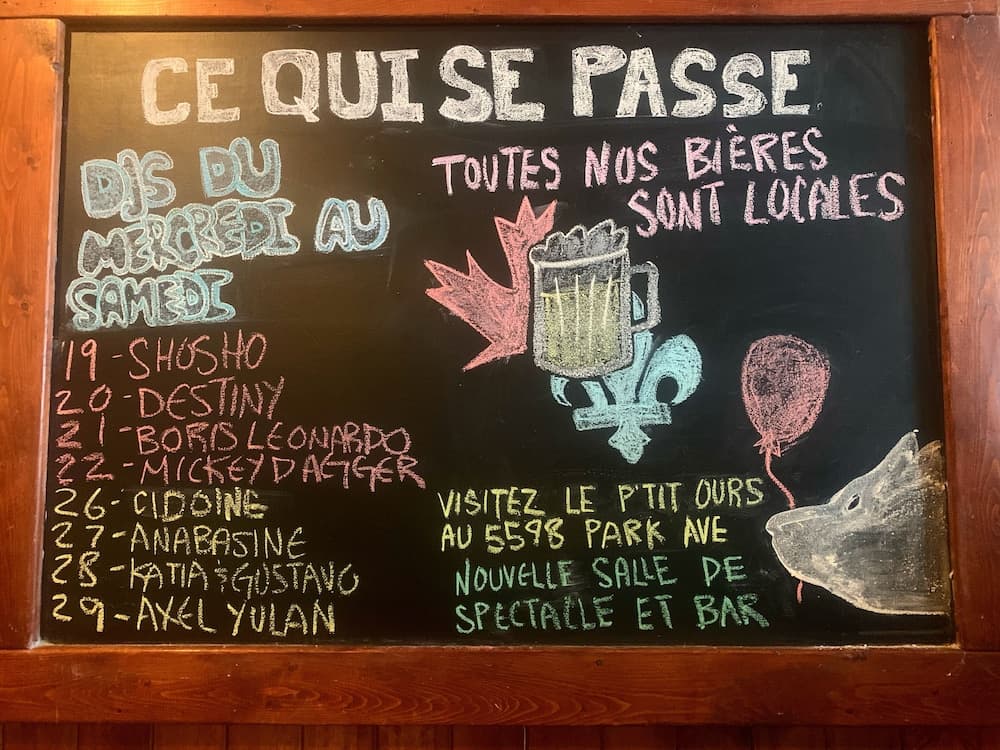 CE QUI SE PASSE
DJS DU
MERCREDI AU
SAMEDI
19 - SHOSHO
20 - DESTINY
21 - BORIS LEONARDO
22 - MICKEY DAGGER
26 - CIDOINE
27 - ANABASINE
28 - KATIA & GUSTAVO
29 - AXEL YULAN
TOUTES NOS BIÈRES
SONT LOCALES
VISITEZ LE P'TIT OURS
AU 5598 PARK AVE
NOUVELLE SALLE DE
SPECTACLE ET BAR